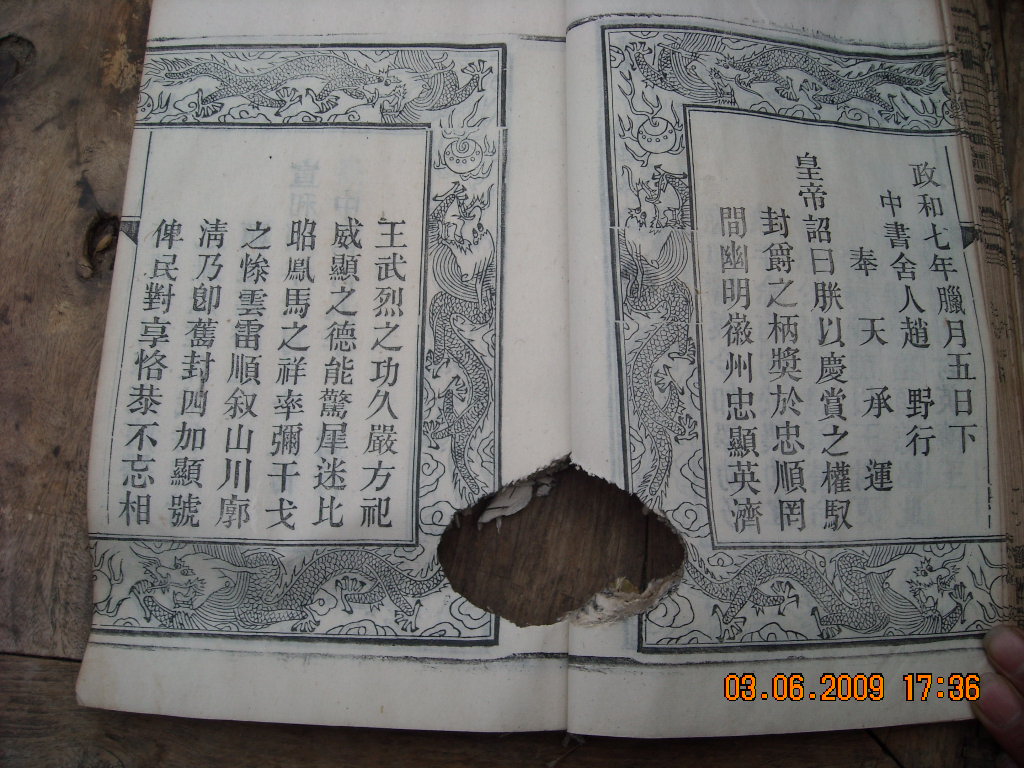 政和七年臘月五日下
中書舍人趙 野行
奉天承運
皇帝詔曰朕以慶賞之權馭
封爵之柄獎於忠順罔
間幽明徽州忠顯英濟
王武烈之功久嚴方祀
威顯之德能驚犀迷比
昭鳳馬之祥率彌干戈
之慘雲雷順叙山川廓
清乃卽舊封四加顯號
俾民對享恪恭不忘相
03.06.2009 17:36